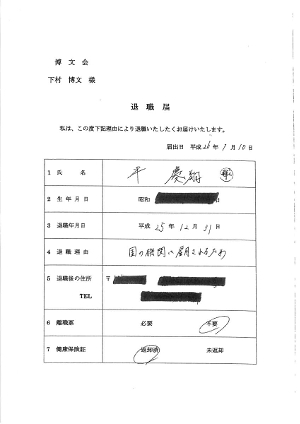 博文会
下村 博文 様
退職届
私は、この度下記理由により退職いたしたくお届けいたします。
届出日 平成26年1月10日
1 氏名 平 慶翔
2 生年月日 昭和 日
3 退職年月日 平成 25年12月31日
4 退職理由 国の機関に雇用されるため
5 退職後の住所 〒
TEL
6 離職票 必要 不要
7 健康保険証 返却済 未返却